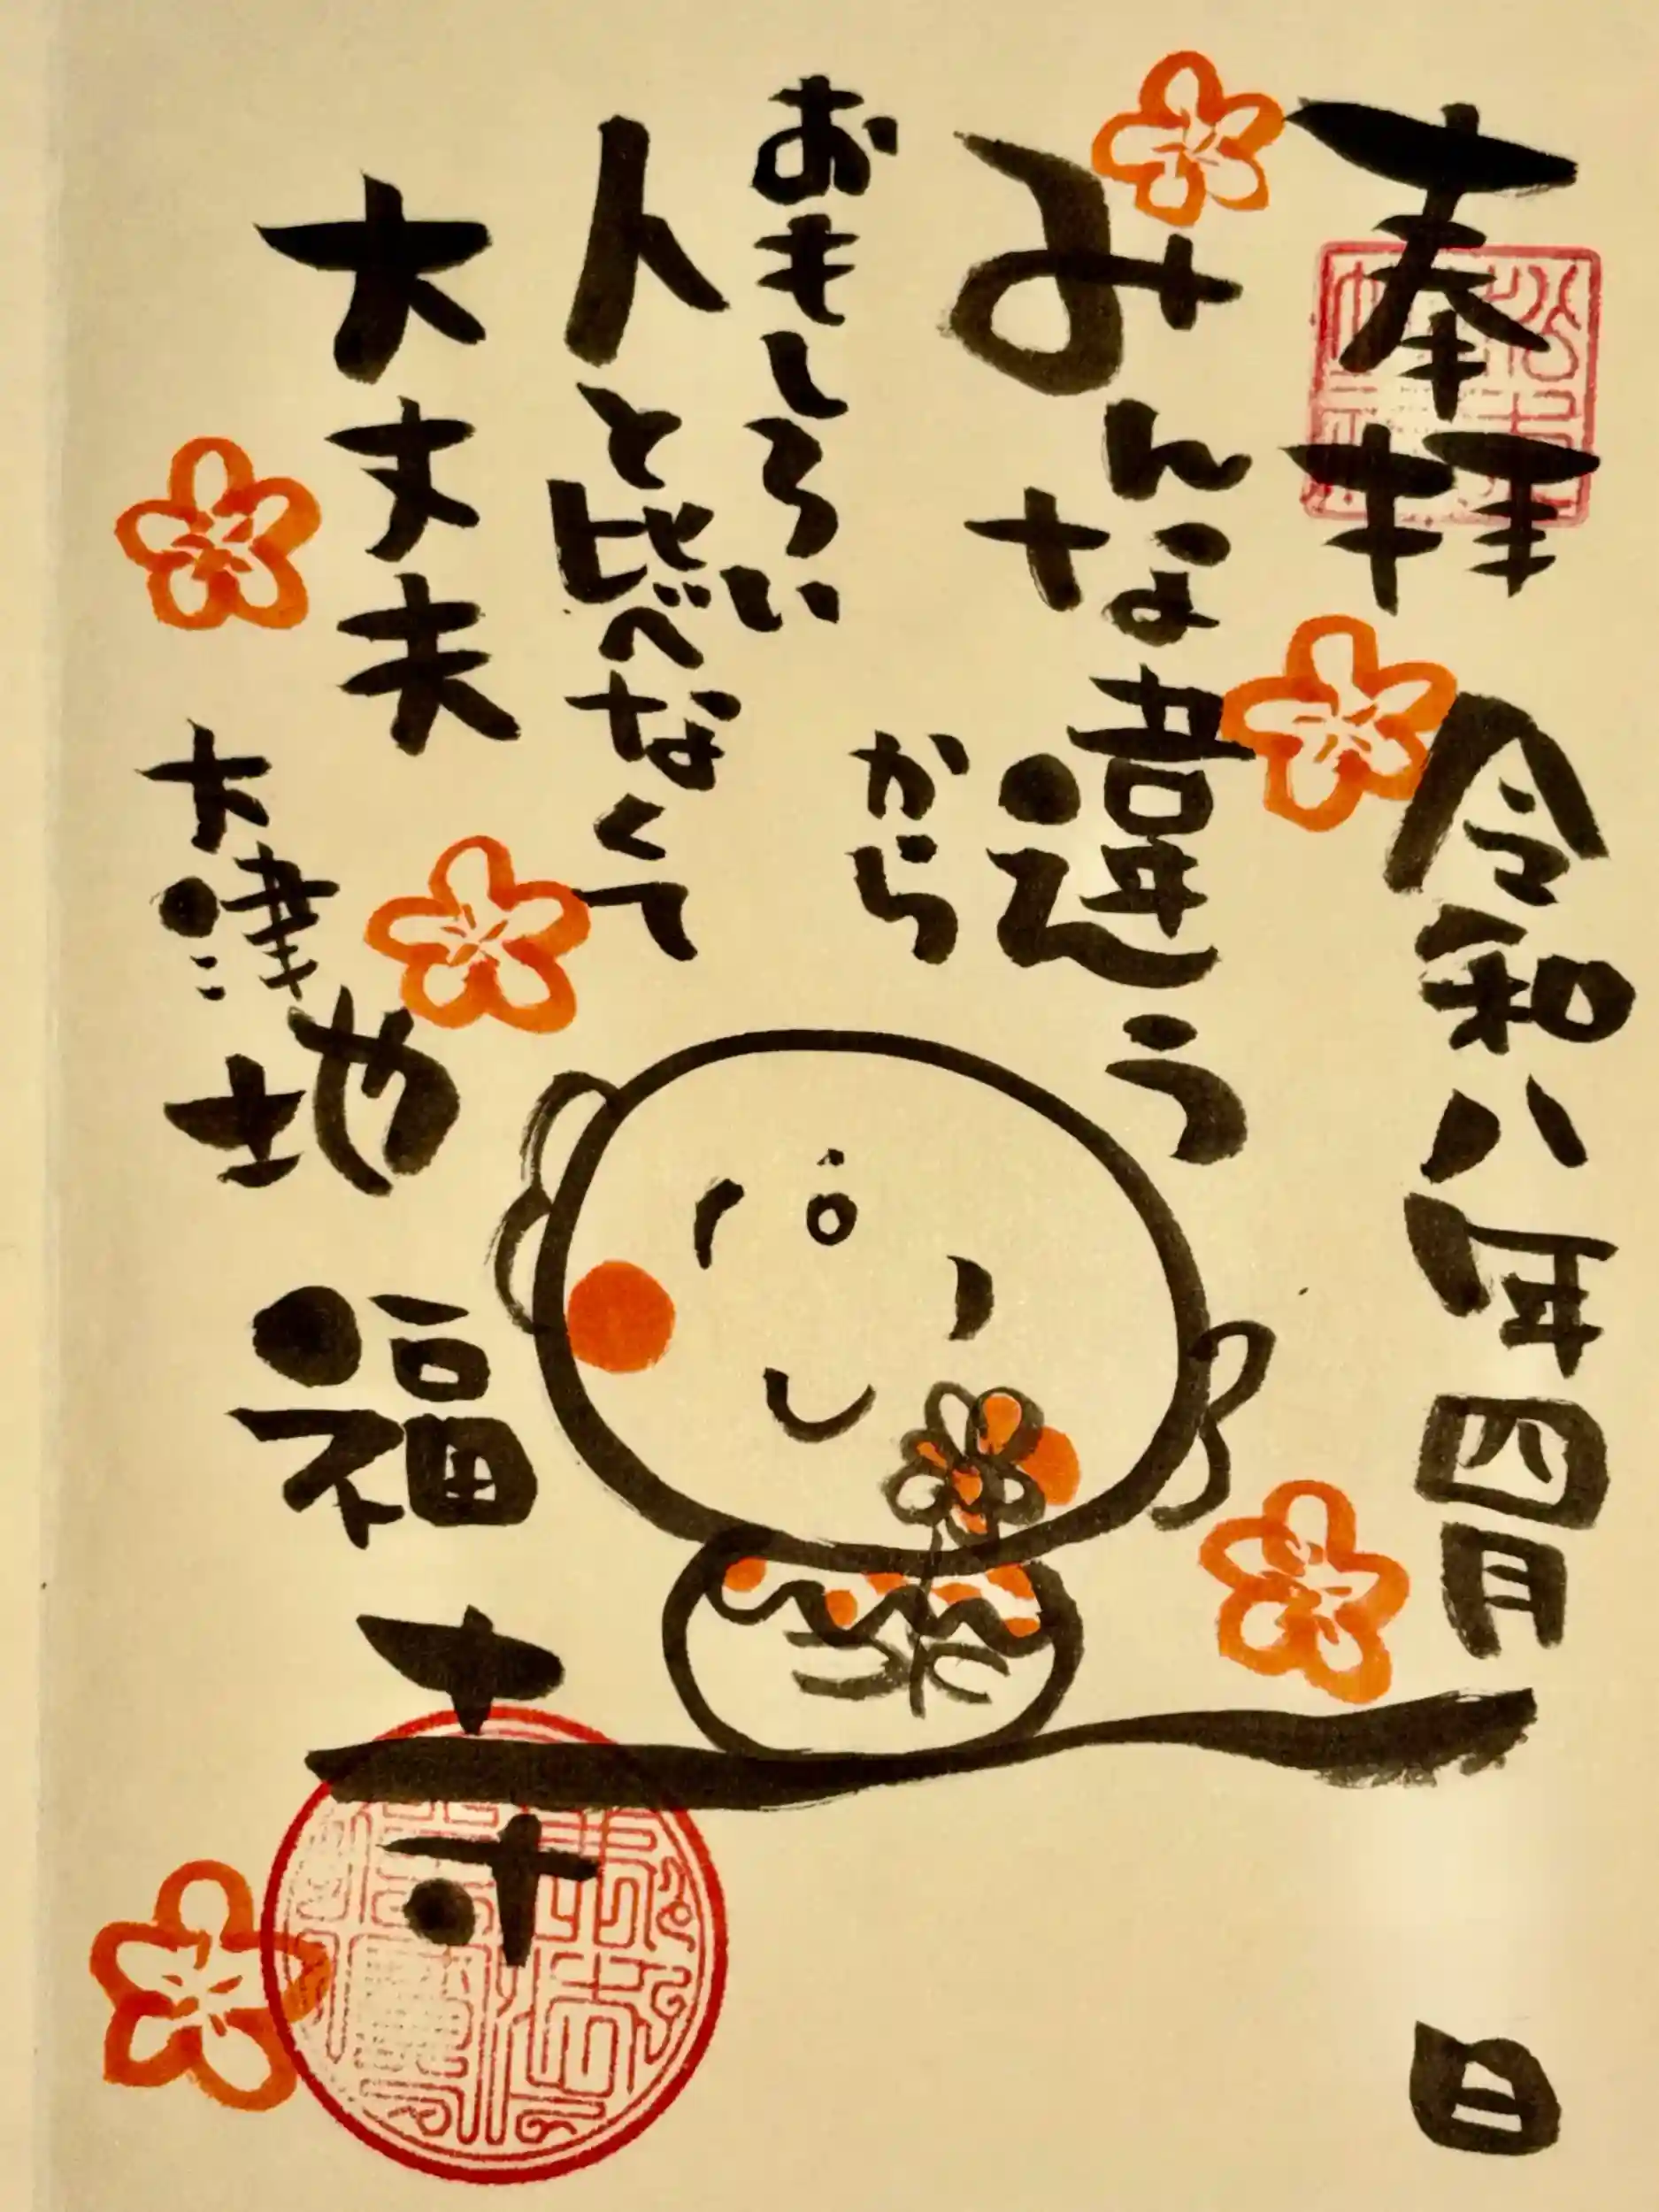 奉拝
令和八年四月 日
みんな違う
から
おもしろい
人と比べなくて
大丈夫
大津
地福寺